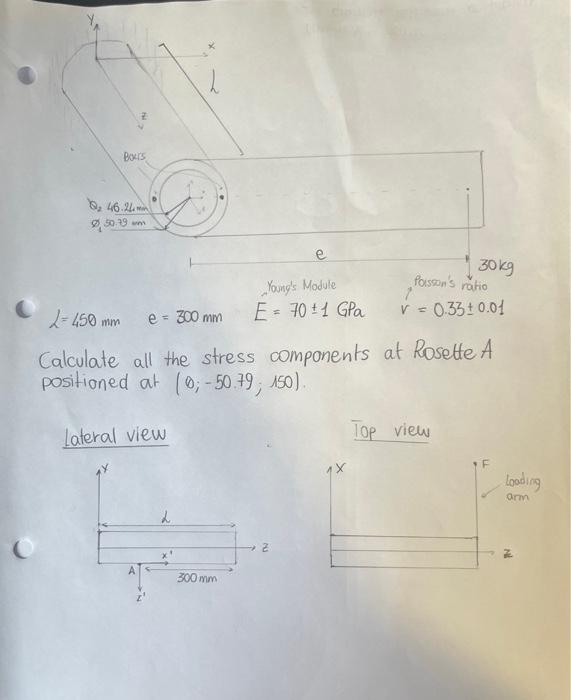 Y
x
L
z
Bolts
Ø₂ 46.24 mm
Ø₁ 50.79 mm
e
30 kg
Young's Module
Poisson's ratio
L = 450 mm e = 300 mm E = 70 ± 1 GPa ν = 0.33 ± 0.01
Calculate all the stress components at Rosette A
positioned at (0; -50.79; 150).
Lateral view
Top view
Y
X
F
Loading
arm
L
z
z
x'
A
300 mm
z'